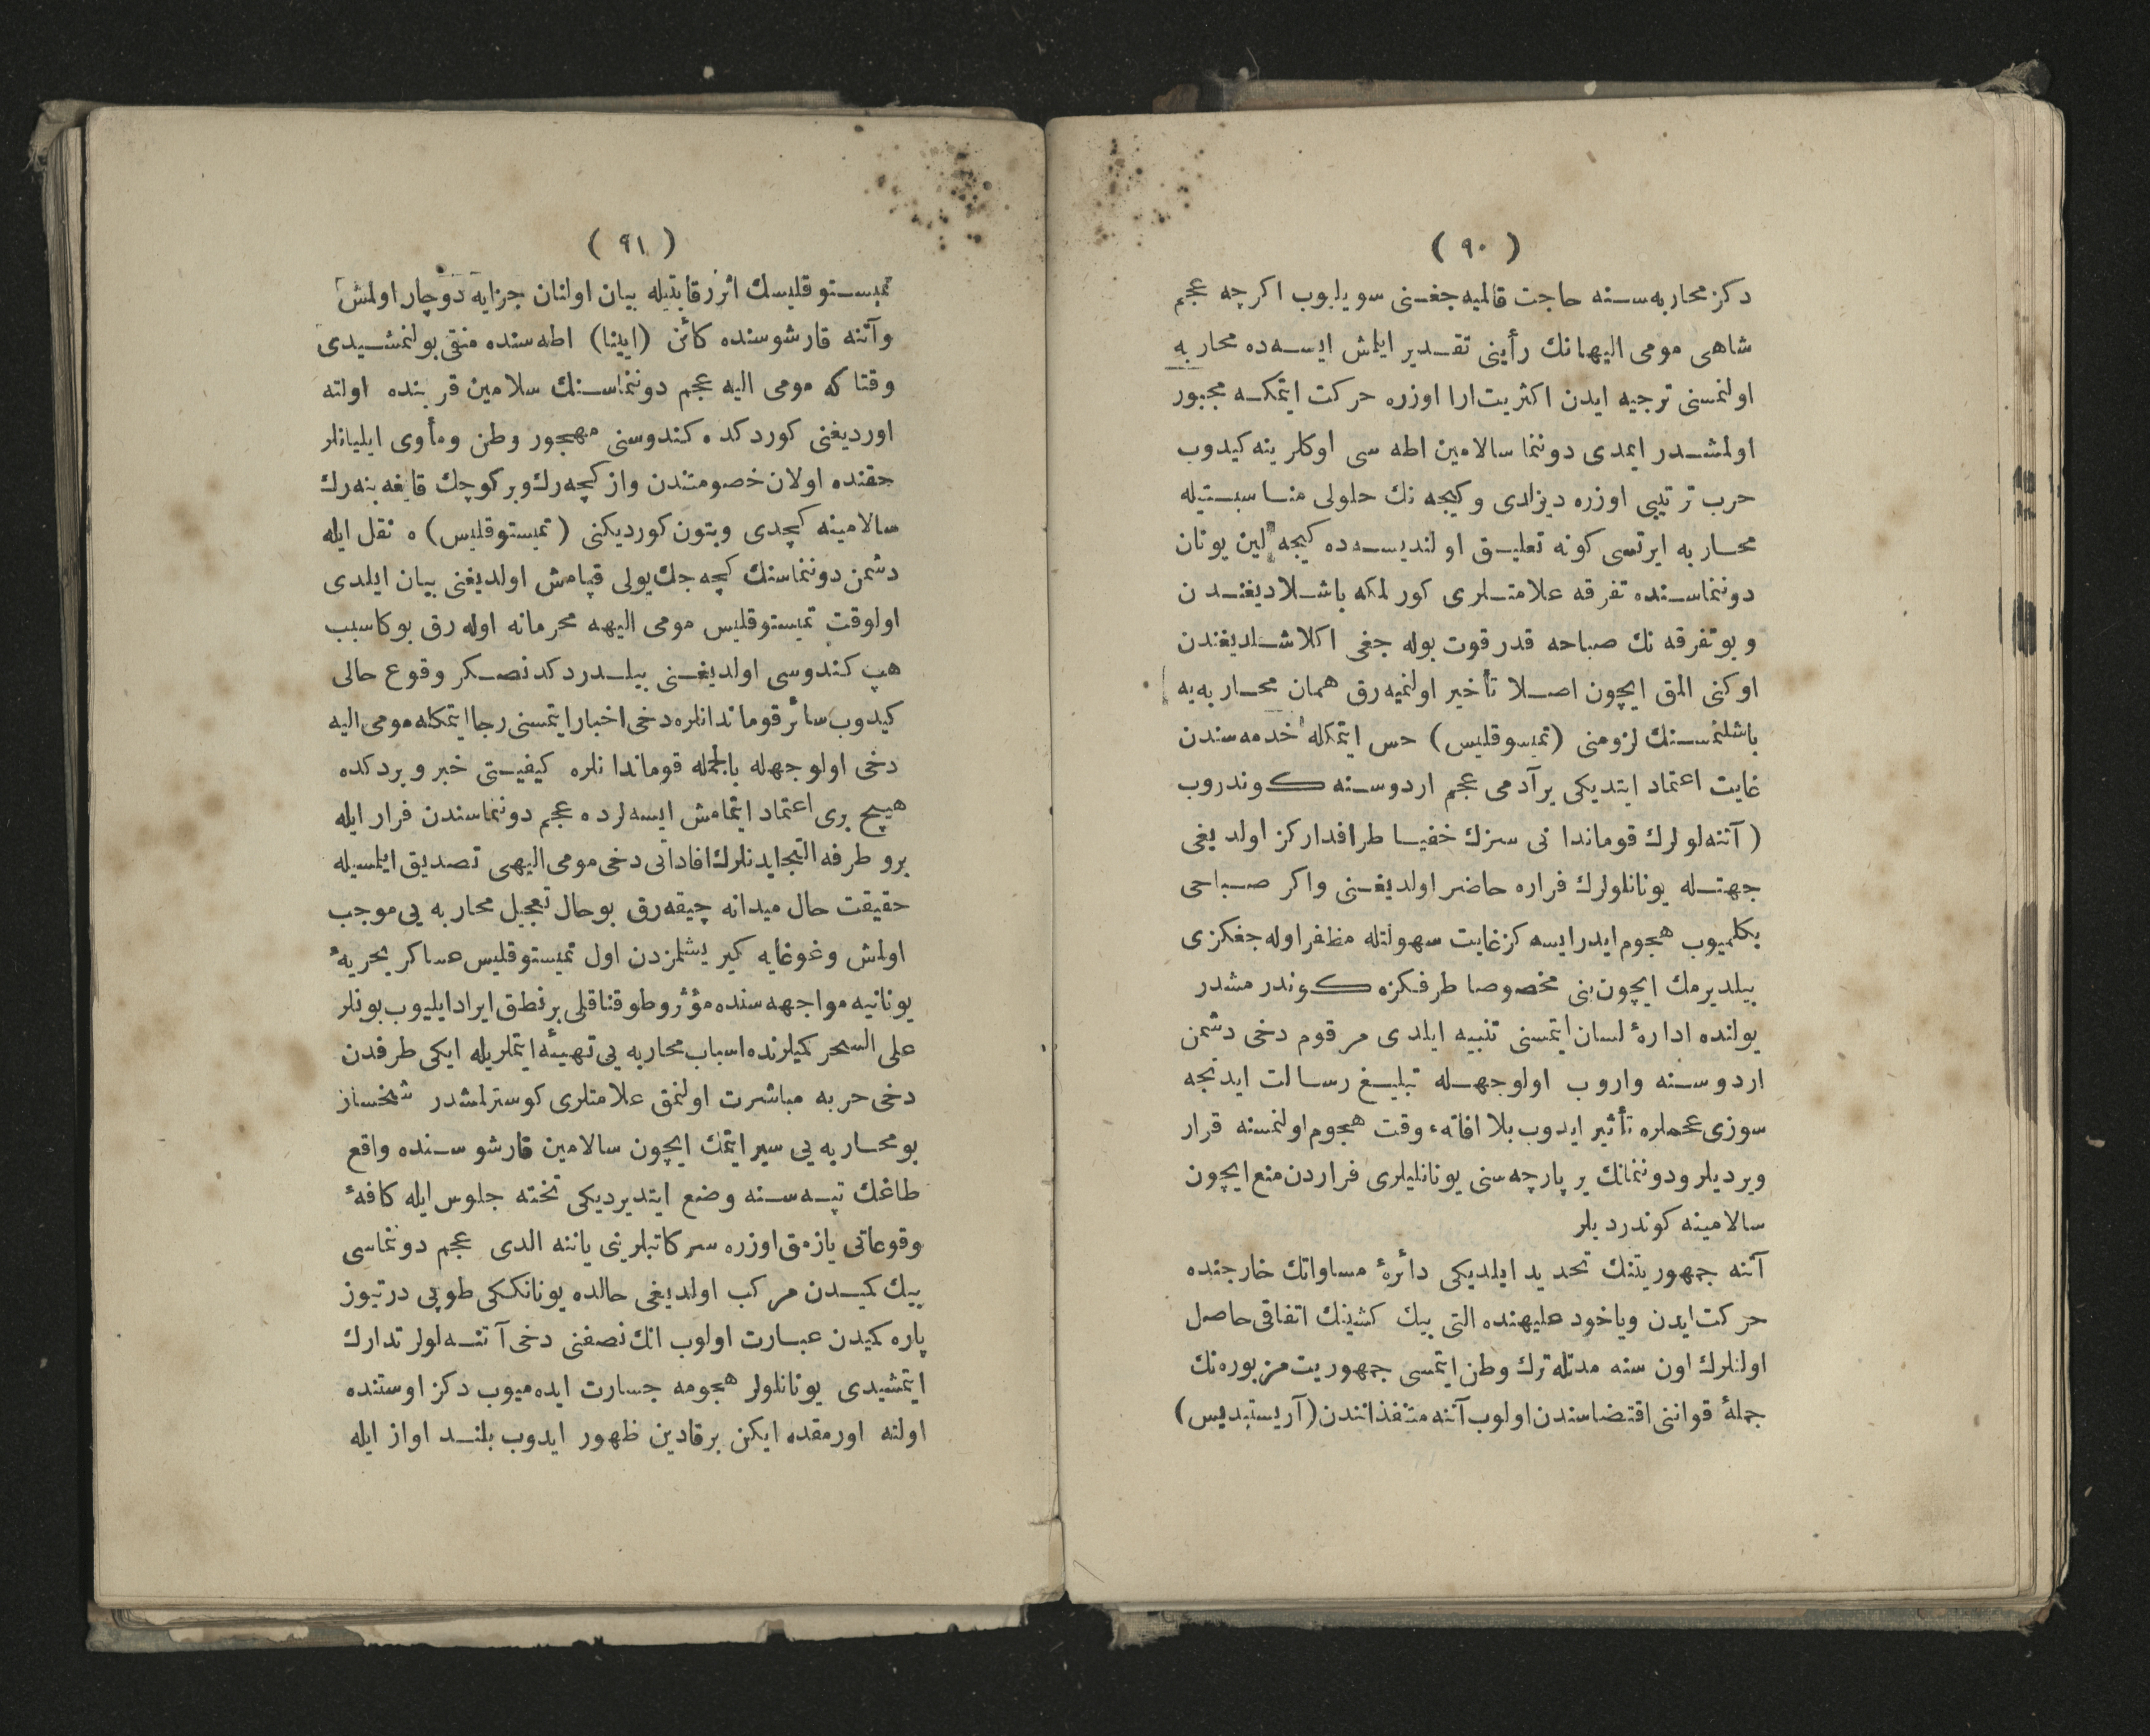 ( ٩٠ )
دكز محاربه‌سنه حاجت قالميه‌جغنى سويليوب اكرچه عجم
شاهى مومى اليهانك رأينى تقدير ايلمش ايسه‌ده محاربه
اولنمسنى ترجيه ايدن اكثريت ارا اوزره حركت ايتمكه مجبور
اولمشدر ايمدى دوننما سالامين اطه سى اوكلرينه كيدوب
حرب ترتيبى اوزره ديزلدى وكيجه نك حلولى مناسبتيله
محاربه ايرتسى كونه تعليق اولنديسه‌ده كيجه لين يونان
دوننماسنده تفرقه علامتلرى كورلمكه باشلاديغندن
وبو تفرقه نك صباحه قدر قوت بوله جغى اكلاشلديغندن
اوكنى المق ايچون اصلا تأخير اولنميه‌رق همان محاربه‌يه
باشلنمسنك لزومنى (تميسوقليس) حس ايتمكله خدمه‌سندن
غايت اعتماد ايتديكى بر آدمى عجم اردوسنه كوندروب
( آتنه‌لولرك قوماندانى سزك خفيا طرافداركز اولديغى
جهتله يونانلولرك فراره حاضر اولديغنى واكر صباحى
بكلميوب هجوم ايدرايسه كز غايت سهولتله مظفر اوله جغكزى
بيلديرمك ايچون بنى مخصوصا طرفكزه كوندرمشدر
يولنده ادارهٔ لسان ايتمسنى تنبيه ايلدى مرقوم دخى دشمن
اردوسنه واروب اولوجهله تبليغ رسالت ايدنجه
سوزى عجملره تأثير ايدوب بلا افاتهء وقت هجوم اولنمسنه قرار
ويرديلر ودوننمانك بر پارچه‌سنى يونانليلرى فراردن منع ايچون
سالامينه كوندرديلر
آتنه جمهوريتنك تحديد ايلديكى دائرهٔ مساواتك خارجنده
حركت ايدن وياخود عليهنده التى بيك كشينك اتفاقى حاصل
اولنلرك اون سنه مدتله ترك وطن ايتمسى جمهوريت مزبوره نك
جملهٔ قوانينى اقتضاسندن اولوب آتنه متنفذانندن (آريستيديس)
( ٩١ )
تميستوقليسك اثر رقابتيله بيان اولنان جزايه دوچار اولمش
وآتنه قارشوسنده كائن (ايينا) اطه‌سنده منفى بولنمشيدى
وقتا كه مومى اليه عجم دوننماسنك سلامين قربنده اولته
اورديغنى كوردكده كندوسنى مهجور وطن ومأوى ايليانلر
حقنده اولان خصومتندن وازكچه‌رك وبر كوچك قايغه بنه‌رك
سالامينه كچدى وبتون كورديكنى (تميستوقليس) ه نقل ايله
دشمن دوننماسنك كچه جك يولى قپامش اولديغنى بيان ايلدى
اولوقت تميستوقليس مومى اليهه محرمانه اوله رق بوكا سبب
هپ كندوسى اولديغنى بيلدردكدنصكر وقوع حالى
كيدوب سائر قوماندانلره دخى اخبار ايتمسنى رجا ايتمكله مومى اليه
دخى اولوجهله بالجمله قوماندانلره كيفيتى خبر ويردكده
هيچ برى اعتماد ايتمامش ايسه‌لرده عجم دوننماسندن فرار ايله
برو طرفه التجا ايدنلرك افاداتى دخى مومى اليهى تصديق ايلمسيله
حقيقت حال ميدانه چيقه‌رق بوحال تعجيل محاربه يى موجب
اولمش وغوغايه كيريشلمزدن اول تميستوقليس عساكر بحريهٔ
يونانيه مواجهه‌سنده مؤثر وطوقناقلى بر نطق ايراد ايليوب بونلر
على السحر كميلرنده اسباب محاربه يى تهيئه ايتملريله ايكى طرفدن
دخى حربه مباشرت اولنمق علامتلرى كوسترلمشدر شخساز
بو محاربه يى سير ايتمك ايچون سالامين قارشوسنده واقع
طاغك تپه‌سنه وضع ايتديرديكى تخته جلوس ايله كافهٔ
وقوعاتى يازمق اوزره سركاتبلرينى ياننه الدى عجم دوننماسى
بيك كميدن مركب اولديغى حالده يونانككى طوپى درتيوز
پاره كميدن عبارت اولوب انك نصفنى دخى آتنه‌لولر تدارك
ايتمشيدى يونانلولر هجومه جسارت ايده‌ميوب دكز اوستنده
اولته اورمقده ايكن برقادين ظهور ايدوب بلند اواز ايله